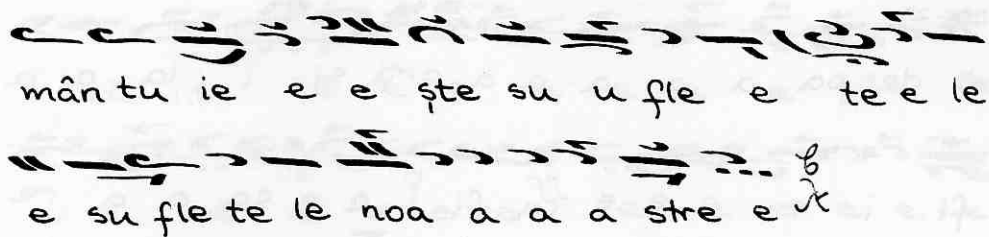 mân tu ie e e ște su u fle e te e le
e su fle te le noa a a a stre e